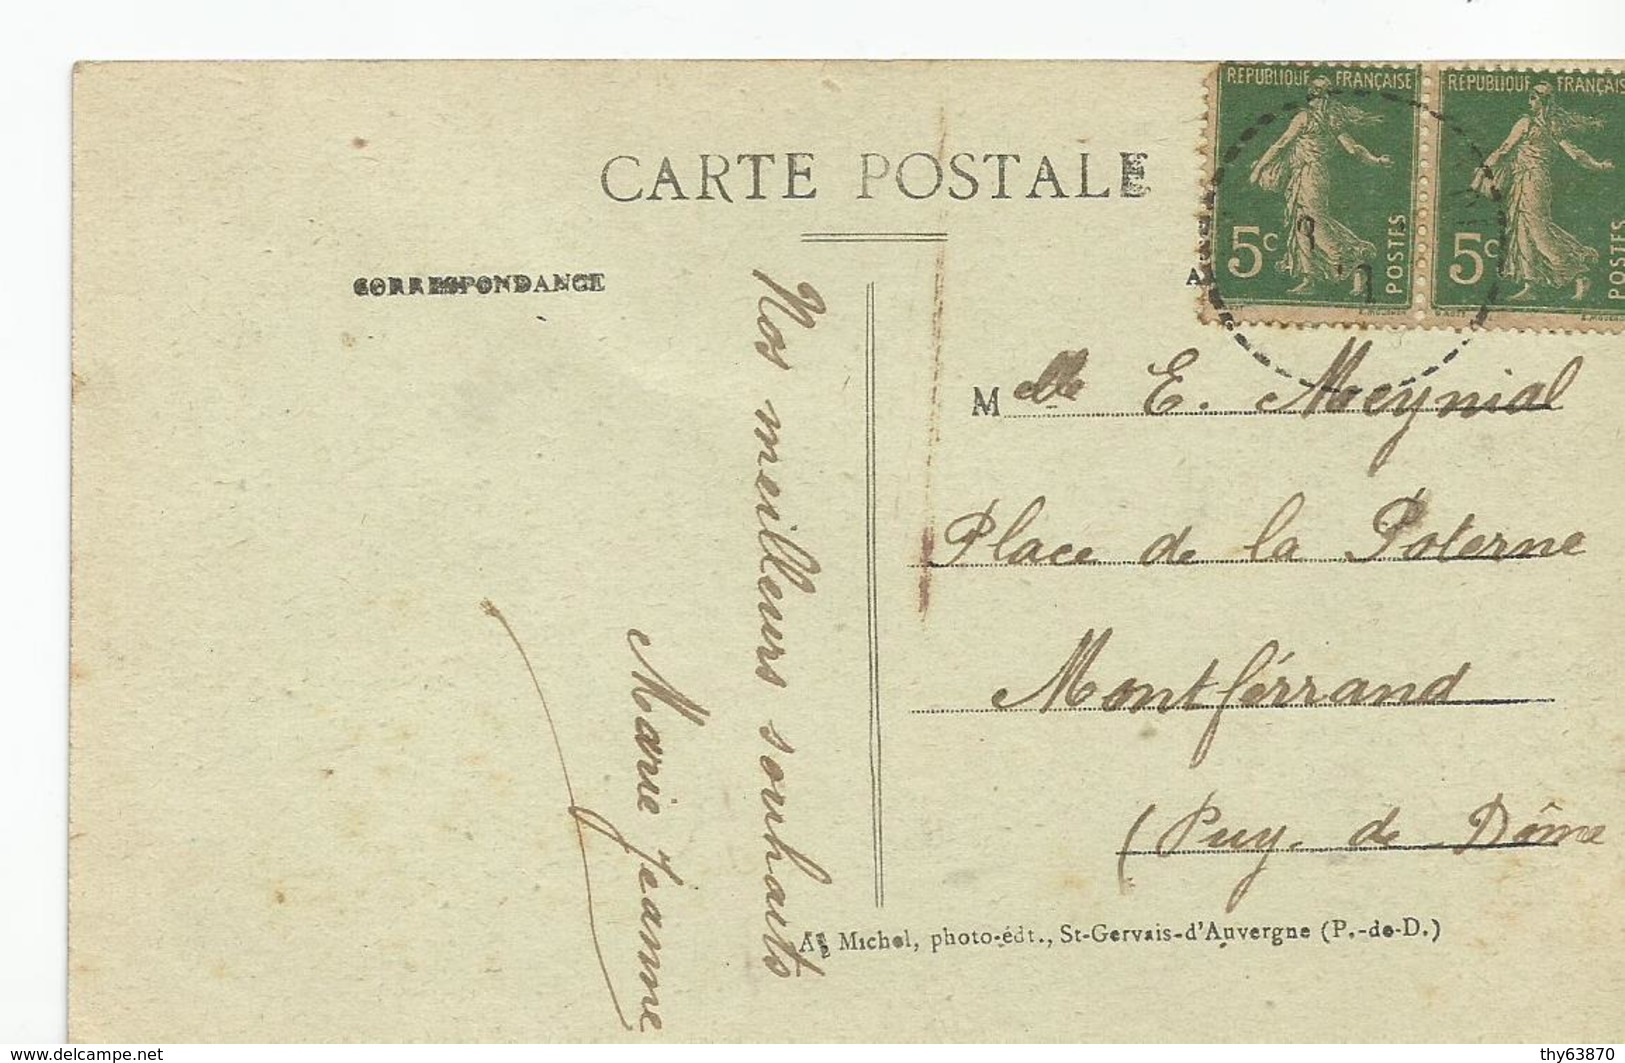 CARTE POSTALE
CORRESPONDANCE
RÉPUBLIQUE FRANÇAISE
5c
POSTES
RÉPUBLIQUE FRANÇAIS
5c
POSTES
Nos meilleurs souhaits
Marie Jeanne
Melle E. Meynial
Place de la Poterne
Montférrand
(Puy. de Dôme
Michel, photo-édt., St-Gervais-d'Auvergne (P.-de-D.)
www.delcampe.net
thy63870